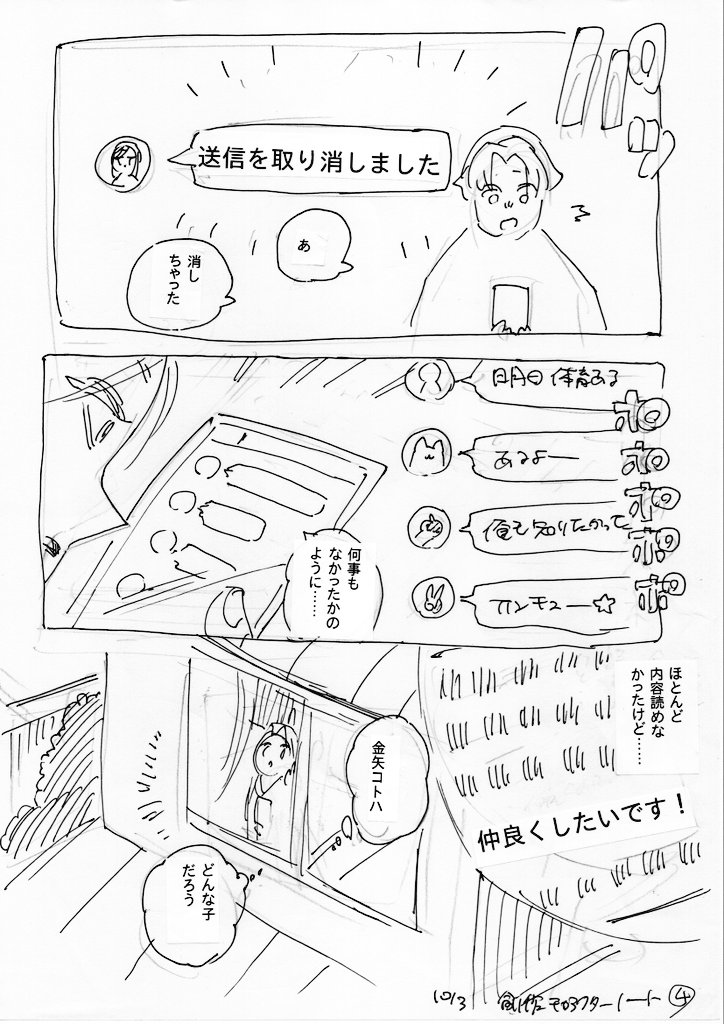 送信を取り消しました
あ
消し
ちゃった
明日体育ある
ポロ
あるよー
ポロ
俺も知りたかって
ポロ
ポロ
サンキュー☆
ポロ
何事も
なかったかの
ように……
ほとんど
内容読めな
かったけど……
仲良くしたいです！
金矢コトハ
どんな子
だろう
10/3
④